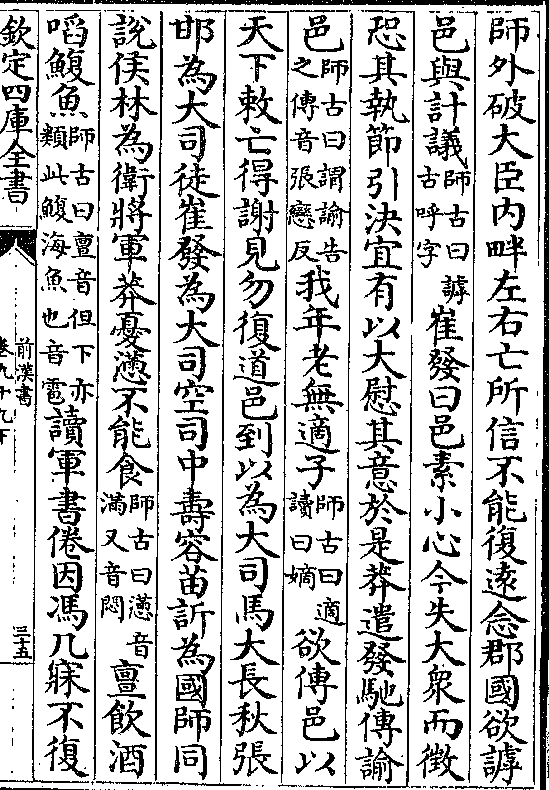 師外破大臣内畔左右亡所信不能復逺念郡國欲謼
邑與計議師古曰謼古呼字崔發曰邑素小心今失大衆而徵
恐其執節引決宜有以大慰其意於是莽遣發馳傳諭
邑師古曰謂諭告之傳音張戀反我年老無適子師古曰適讀曰嫡欲傳邑以
天下敕亡得謝見勿復道邑到以為大司馬大長秋張
邯為大司徒崔發為大司空司中壽容苗訢為國師同
說侯林為衛將軍莽憂懣不能食師古曰懣音滿又音悶亶飲酒
啗鰒魚師古曰亶音但下亦類此鰒海魚也音雹讀軍書倦因馮几寐不復
欽定四庫全書
前漢書
卷九十九下
三十五